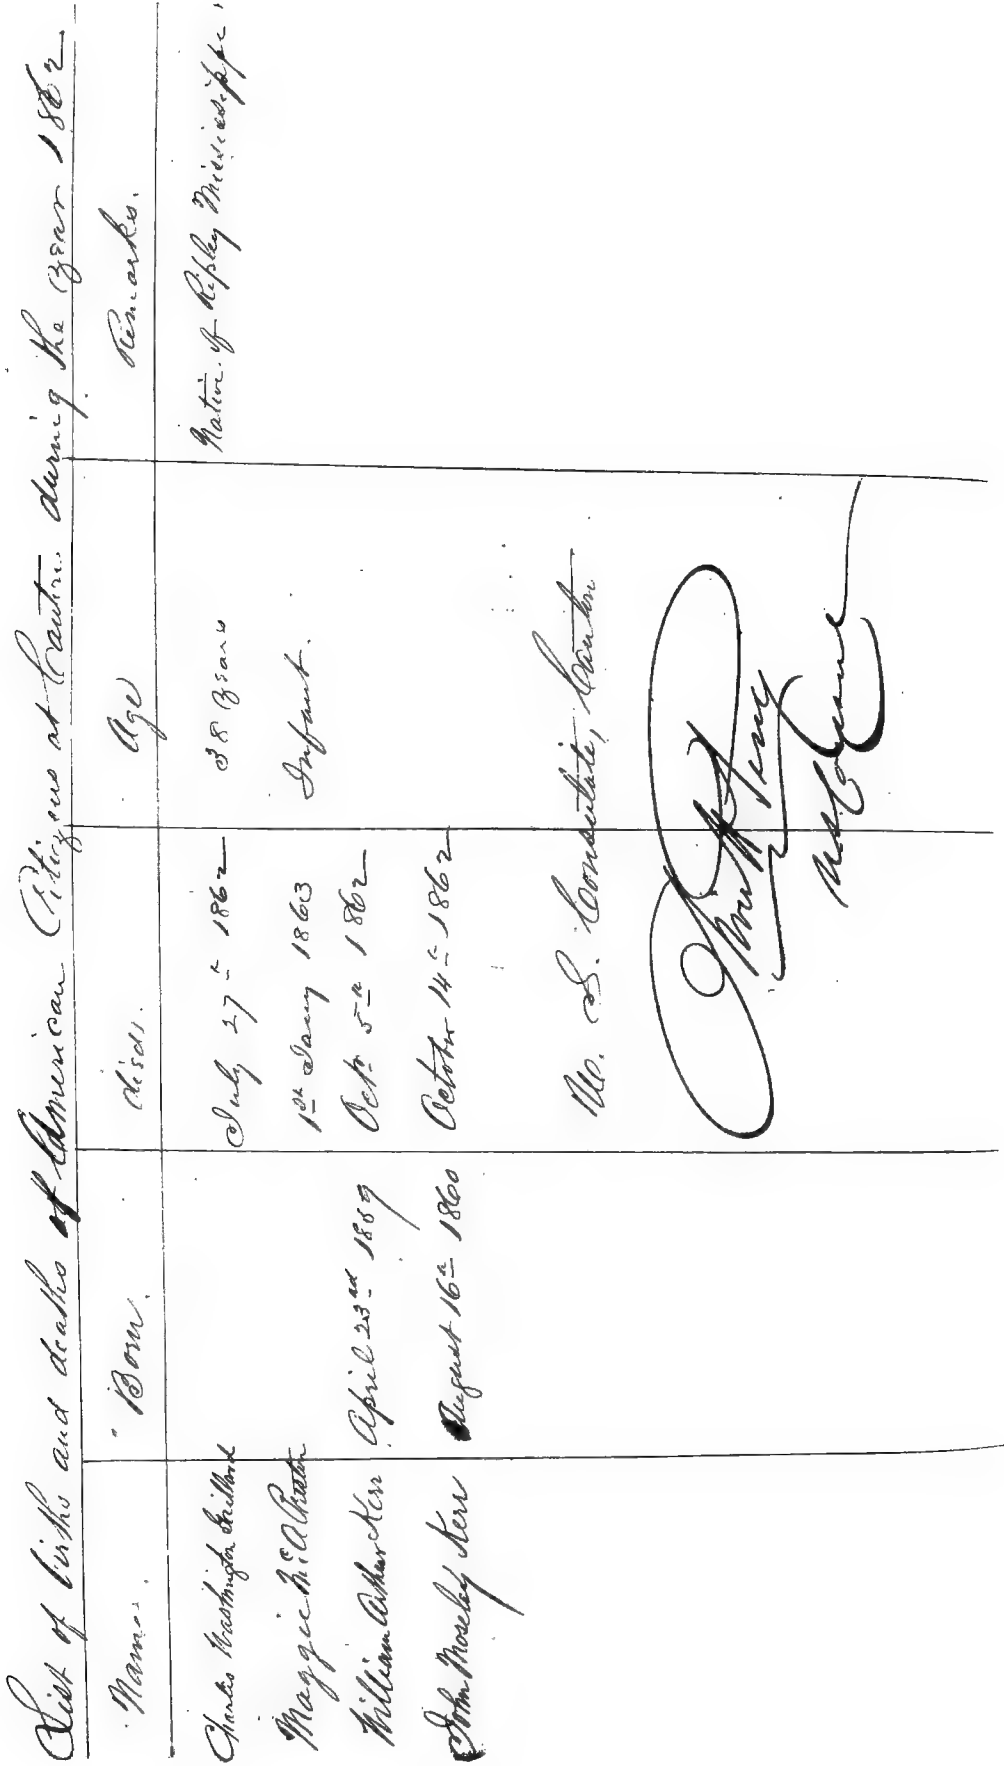 List of births and deaths of American Citizens at Canton during the year 1862
Name. Born. Died. Age Remarks.
Charles Washington Gaillard July 27th 1862 38 years Native of Ripley Mississippi
Maggie McChesten 1st Jany 1863 Infant.
William Arthur Kerr April 23rd 1859 Octr 5th 1862
John Moseley Kerr August 16th 1860 October 14th 1862
U. S. Consulate, Canton
Perry
U S Consul